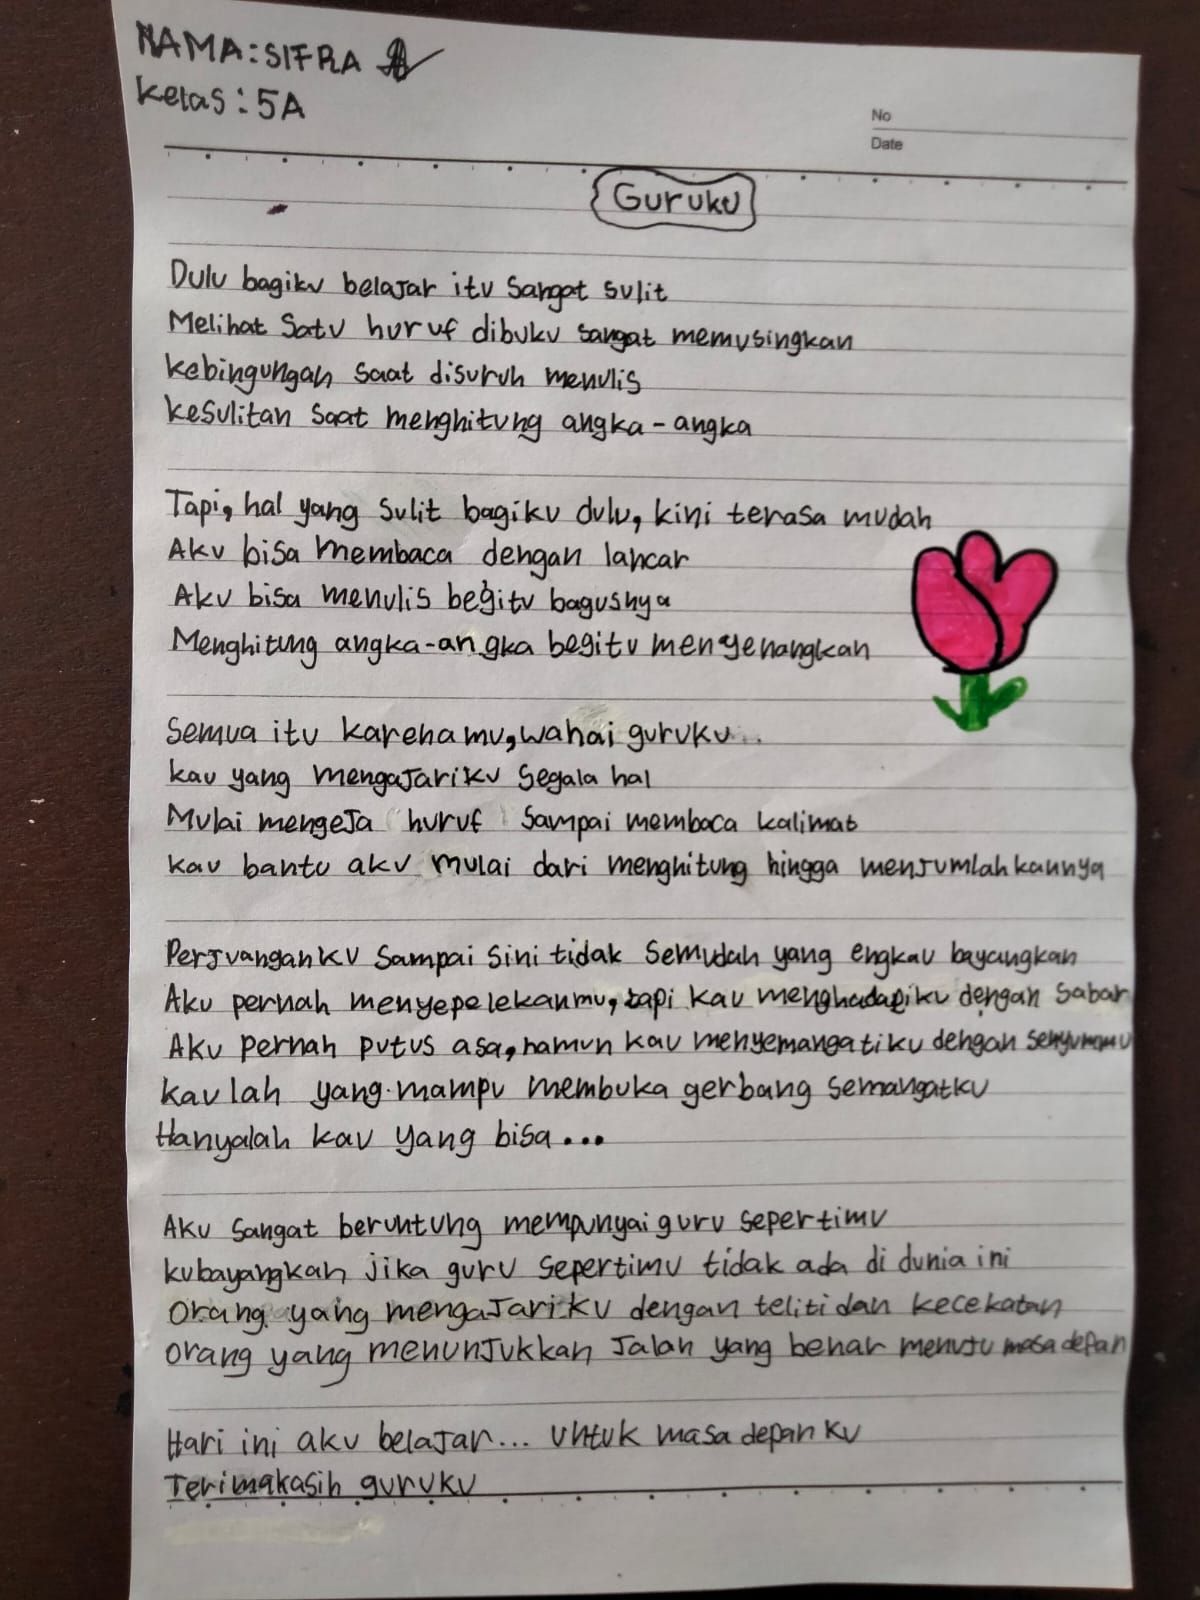 NAMA: SIFRA A
Kelas: 5A
No
Date
Guruku
Dulu bagiku belajar itu sangat sulit
Melihat satu huruf dibuku sangat memusingkan
kebingungan saat disuruh menulis
kesulitan saat menghitung angka-angka
Tapi, hal yang sulit bagiku dulu, kini terasa mudah
Aku bisa membaca dengan lancar
Aku bisa menulis begitu bagusnya
Menghitung angka-angka begitu menyenangkan
Semua itu karenamu, wahai guruku...
kau yang mengajariku segala hal
Mulai mengeja huruf sampai membaca kalimat
kau bantu aku mulai dari menghitung hingga menjumlahkannya
Perjuanganku sampai sini tidak semudah yang engkau bayangkan
Aku pernah menyepelekanmu, tapi kau menghadapiku dengan sabar
Aku pernah putus asa, namun kau menyemangatiku dengan senyummu
kaulah yang mampu membuka gerbang semangatku
Hanyalah kau yang bisa...
Aku sangat beruntung mempunyai guru sepertimu
kubayangkan jika guru sepertimu tidak ada di dunia ini
orang yang mengajariku dengan teliti dan kecekatan
orang yang menunjukkan jalan yang benar menuju masa depan
Hari ini aku belajar... untuk masa depanku
Terimakasih guruku